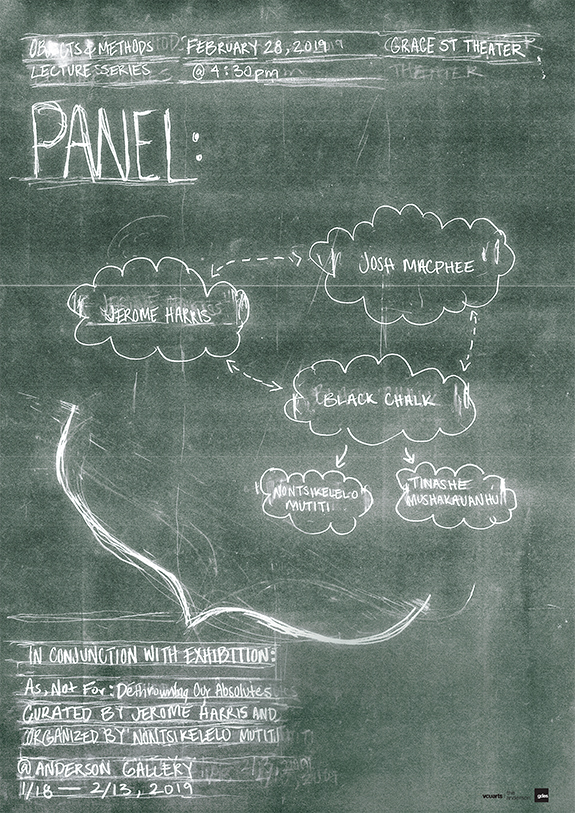 OBJECTS & METHODS
LECTURE SERIES
FEBRUARY 28, 2019
@ 4:30pm
GRACE ST THEATER
THEATER
PANEL:
JOSH MACPHEE
JEROME HARRIS
BLACK CHALK
NONTSIKELELO
MUTITI
TINASHE
MUSHAKAVANHU
IN CONJUNCTION WITH EXHIBITION:
As, Not For: Dethroning Our Absolutes
CURATED BY JEROME HARRIS AND
ORGANIZED BY NONTSIKELELO MUTITI
@ ANDERSON GALLERY
1/18 — 2/13, 2019
vcuarts
the
anderson
gdes